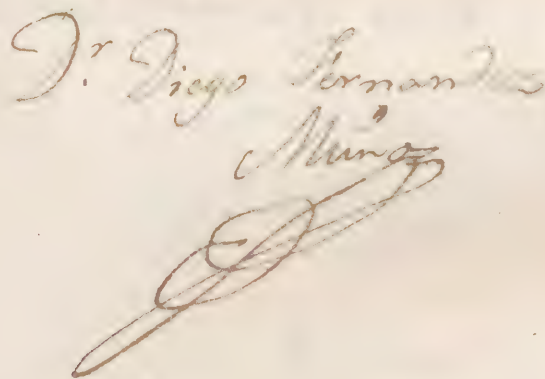 Dr Diego Fernandez
Muñoz